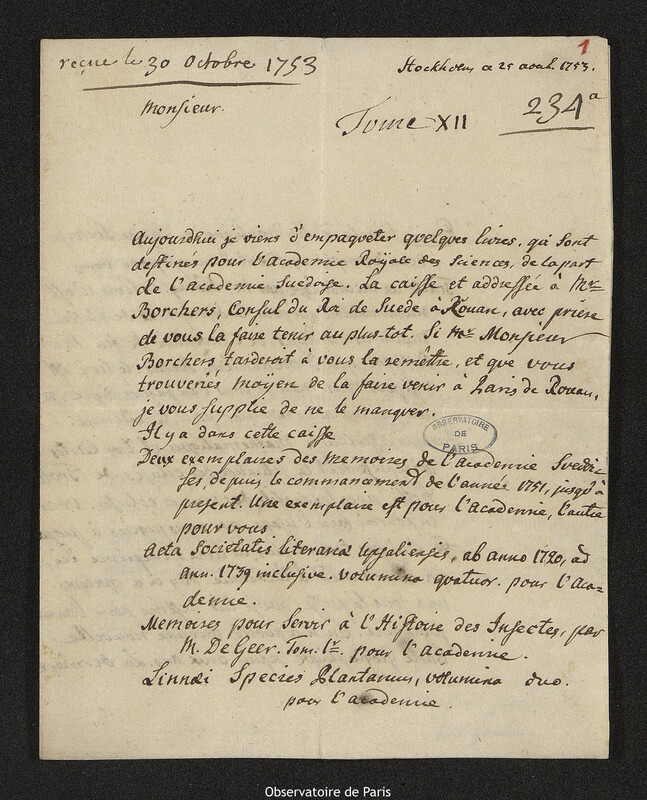 1
reçue le 30 Octobre 1753
Stockholm ce 25 aout. 1753.
Monsieur.
Tome XII
234a
Aujourdhui je viens d'empaqueter quelques livres, qui sont
destinés pour l'academie Royale des Sciences, de la part
de l'Academie Suedoise. La caisse et addressée à Mr
Borchers, Consul du Roi de Suede à Rouan, avec prière
de vous la faire tenir au plus-tot. Si Monsieur
Borchers tarderoit à vous la remettre, et que vous
trouveriés moyen de la faire venir à Paris de Rouan,
je vous supplie de ne le manquer.
Il y a dans cette caisse
OBSERVATOIRE
DE
PARIS
Deux exemplaires des Memoires de l'academie Svedoi
ses, depuis le commancement de l'année 1751, jusqu'à
present. Une exemplaire est pour l'Academie, l'autre
pour vous
Acta Societatis literariæ Upsaliensis, ab anno 1720, ad
ann. 1739 inclusive. volumina quatuor. pour l'Aca-
demie.
Memoires pour servir à l'Histoire des Insectes, par
M. De Geer. Tom. 1r. pour l'academie.
Linnæi Species Plantarum, volumina duo.
pour l'academie.
Observatoire de Paris